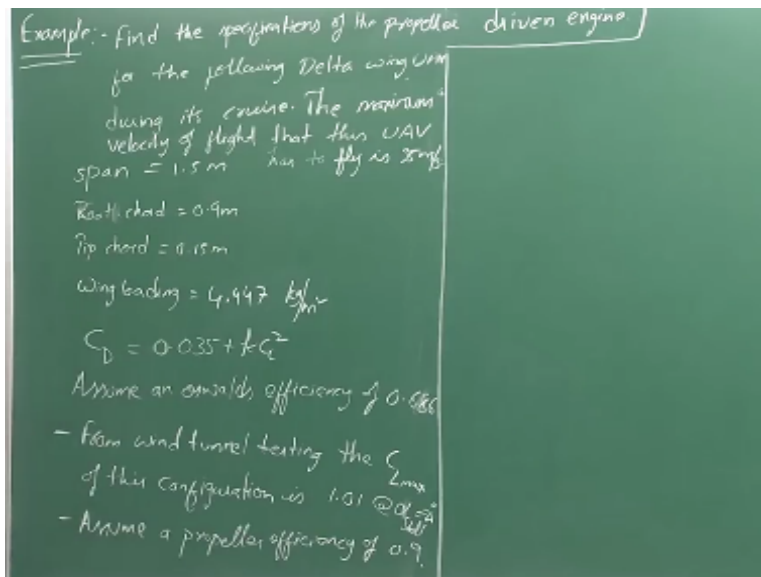 Example:- Find the specifications of the propeller driven engine
for the following Delta wing UAV
during its cruise. The maximum
velocity of flight that this UAV
has to fly is
span = 1.5 m
Root chord = 0.9m
Tip chord = 0.15m
wing loading = 4.447 kg/m²
C_D = 0.035 + kC_L²
Assume an oswalds efficiency of
- From wind tunnel testing the C_Lmax
of this configuration is 1.01 @ α_stall =
- Assume a propeller efficiency of 0.9